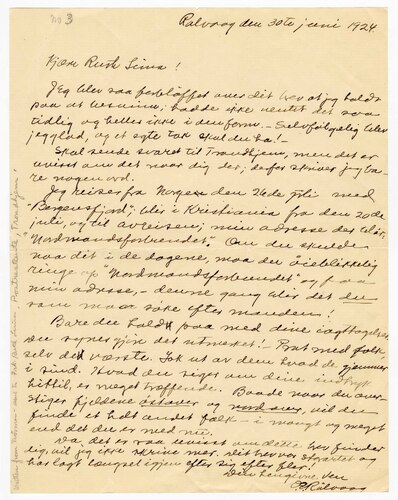 no 3
Ralvaag den 30te juni 1924
Kjære Ruth Lima!
Jeg blev saa forbløffet over dit brev at jeg holdt
paa at besvime; hadde ikke ventet det saa
tidlig og heller ikke i den form. – Selvfølgelig blev
jeg glad, og et egte tak skal du ha! –
Skal sende svaret til Trondhjem, men det er
uvisst om det naar dig der; derfor skriver jeg ba-
re nogen ord.
Jeg reiser fra Norge den 26de juli med
"Bergensfjord"; blir i Kristiania fra den 20de
juli, og til avreisen; min adresse der blir,
"Nordmandsforbundet". Om du skulde
naa dit i de dagene, maa du øieblikkelig
ringe op "Nordmandsforbundet" og faa
min adresse, – denne gang blir det du
som maar søke efter manden!
Bare du holdt paa med dine iagttagelser,
du synes gjøre det utmerket! Prat med folk,
selv de værste. Lok ut av dem hvad de gjemmer
i sind. Hvad du siger om dine indtryk
hittil, er meget træffende. Baade naar du over-
stiger fjeldene østover og nordover, vil du
finde et helt andet folk – i mangt og meget
end det du er med nu.
Ja, det er saa uvisst om dette brev finder
dig, vil jeg ikke skrive mer. Dit brev var
har lagt længsel igjen efter sig efter fler!
Din hengivne ven